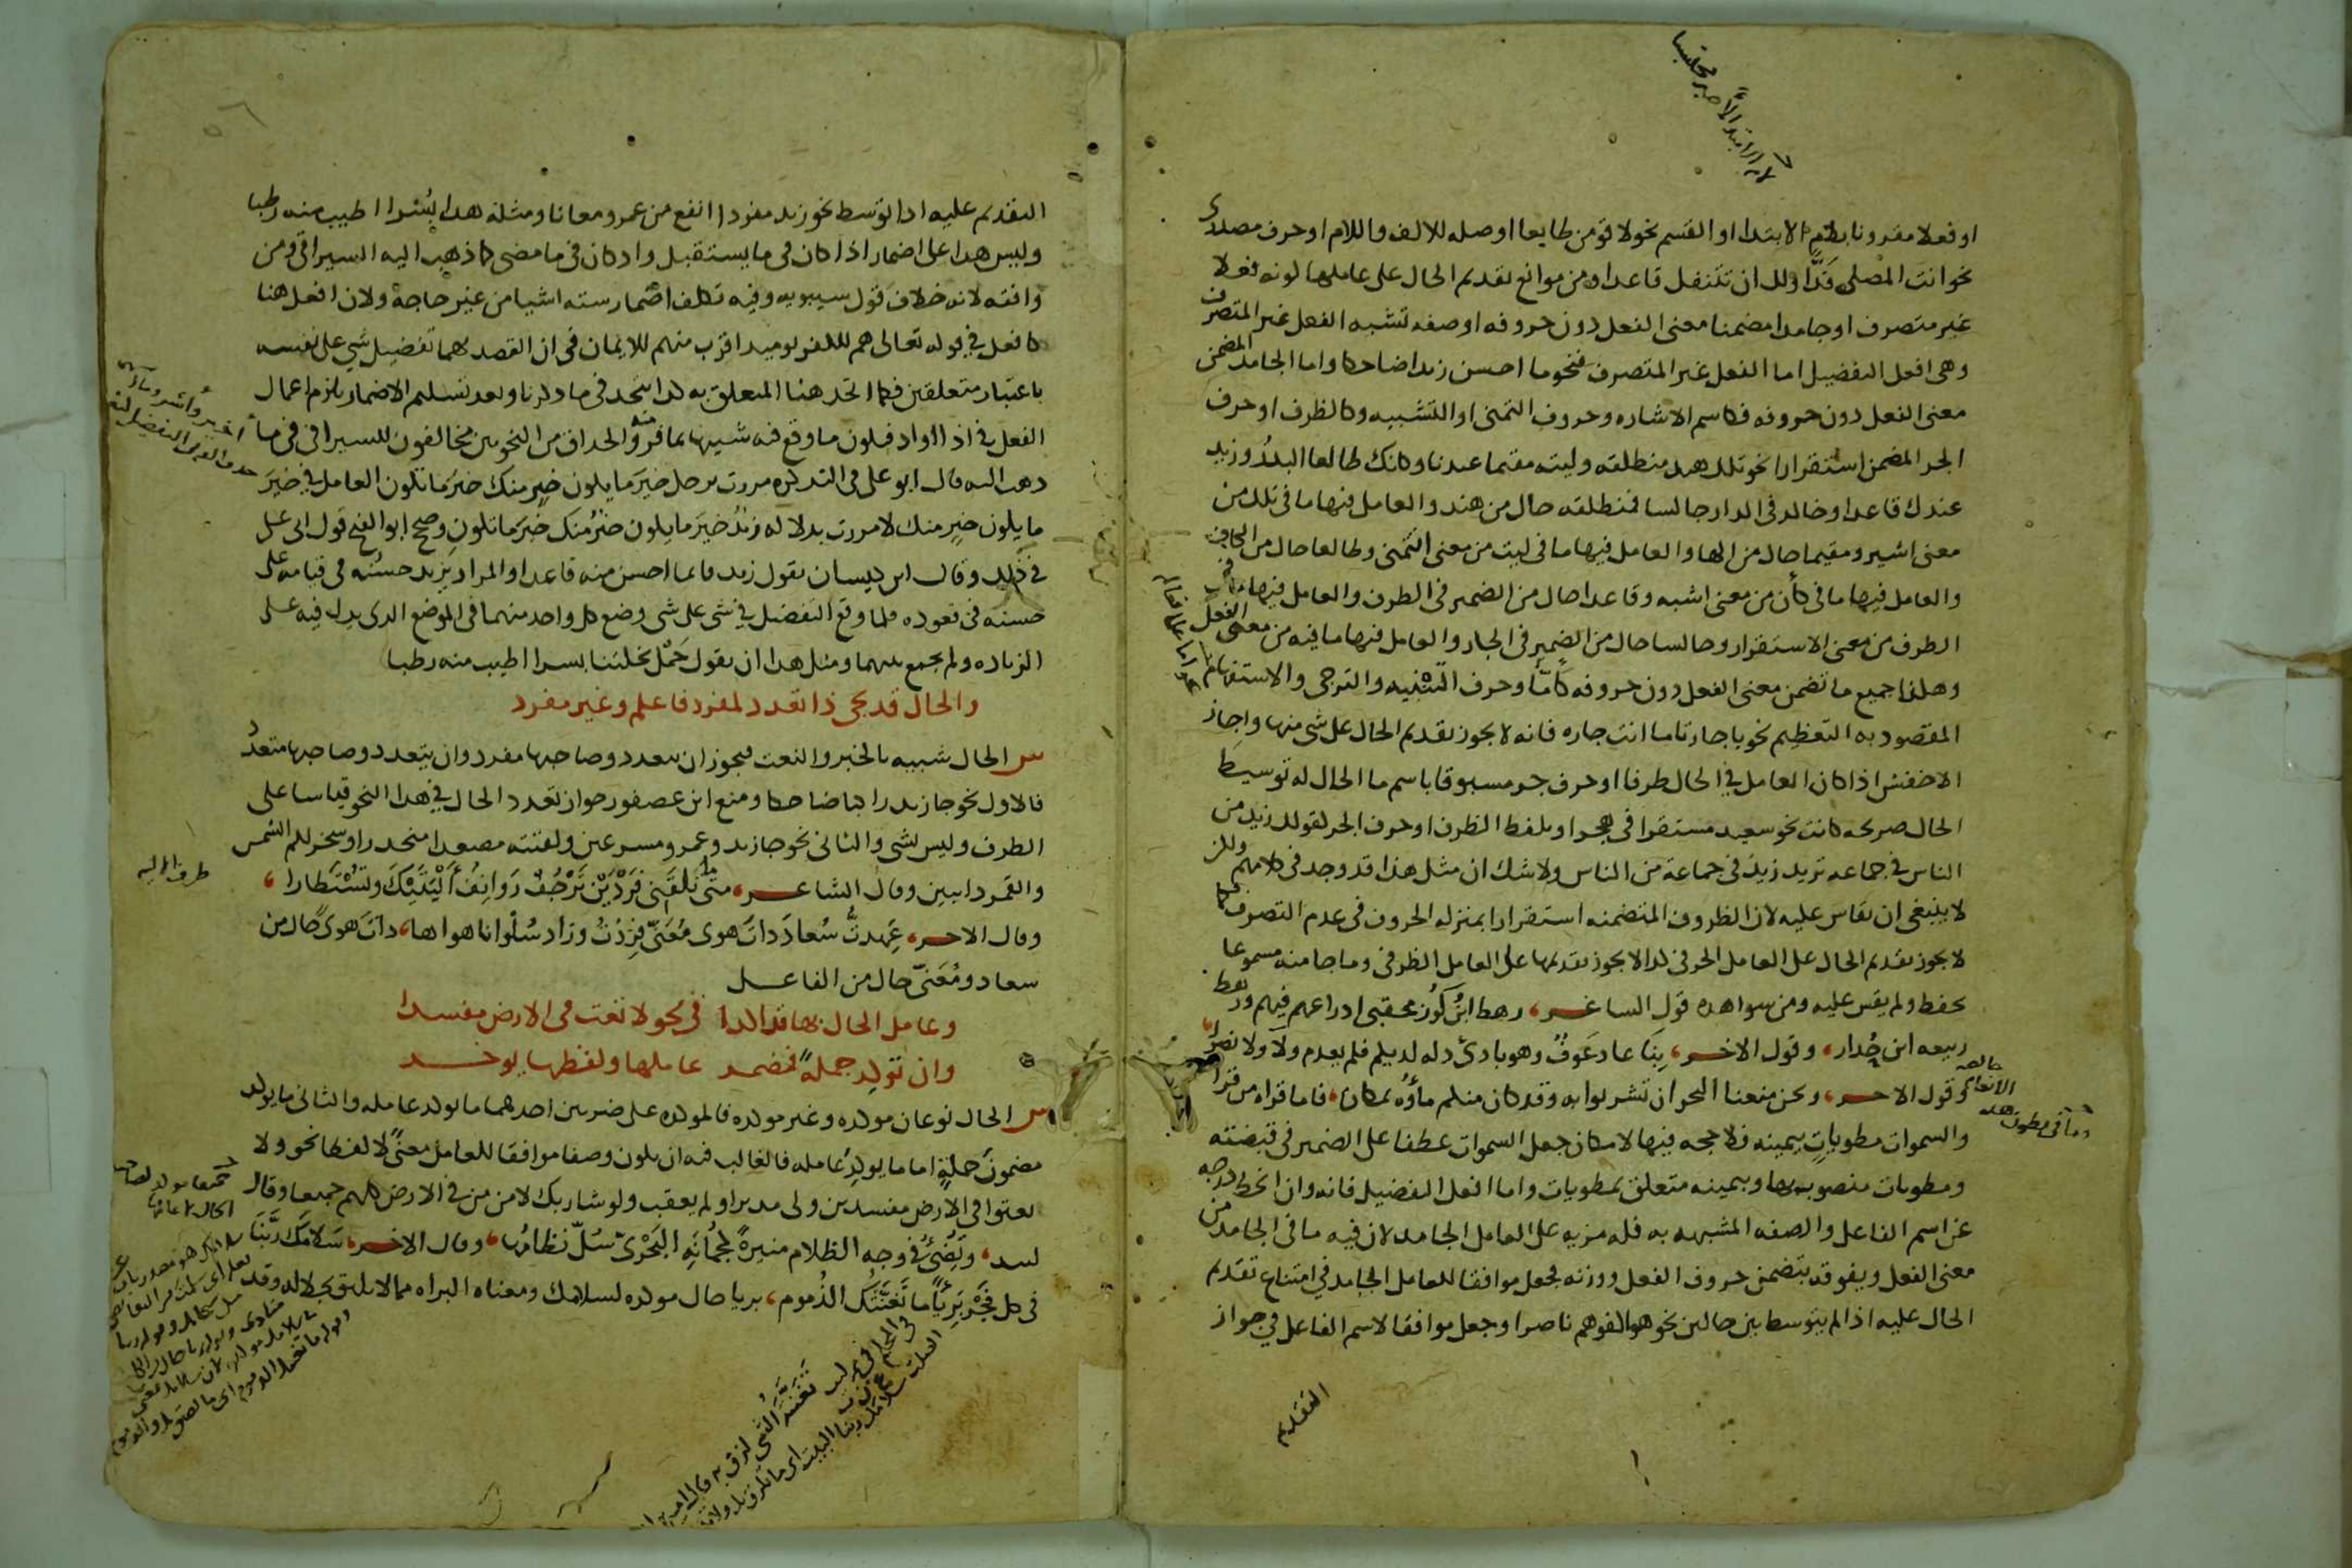 او فعلا مقرونا بلام الابتدا او القسم نحو لاقومن طايعا او صله للالف واللام او حرف مصدرى
نحو انت المصلى فذا ولك ان تتنفل قاعدا ومن موانع تقديم الحال على عاملها كونه فعلا
غير متصرف او جامدا مضمنا معنى الفعل دون حروفه او صفه تشبه الفعل غير المتصرف
وهى افعل التفضيل اما الفعل غير المتصرف فنحو ما احسن زيدا ضاحكا واما الجامد المضمن
معنى الفعل دون حروفه فكاسم الاشاره وحروف التمنى او التشبيه وكالظرف او حرف
الجر المضمن استقرارا نحو تلك هند منطلقه وليته مقيما عندنا وكانك طالعا البدر وزيد
عندك قاعدا وخالد فى الدار جالسا فمنطلقه حال من هند والعامل فيها ما فى تلك من
معنى اشير ومقيما حال من الها والعامل فيها ما فى ليت من معنى اتمنى وطالعا حال من الكاف
والعامل فيها ما فى كأن من معنى اشبه وقاعدا حال من الضمير فى الظرف والعامل فيها ما فى
الظرف من معنى الاستقرار وجالسا حال من الضمير فى الجار والعامل فيها ما فيه من معنى الفعل
وهكذا جميع ما تضمن معنى الفعل دون حروفه كاما وحرف التنبيه والترجى والاستفهام
المقصود به التعظيم نحو يا جارتا ما انت جاره فانه لا يجوز تقديم الحال على شى منها واجاز
الاخفش اذا كان العامل فى الحال ظرفا او حرف جر مسبوقا باسم ما الحال له توسيط
الحال صريحه كانت نحو سعيد مستقرا فى هجر او بلفظ الظرف او حرف الجر كقولك زيد من
الناس فى جماعه تريد زيد فى جماعة من الناس ولا شك ان مثل هذا قد وجد فى كلامهم ولكن
لا ينبغى ان يقاس عليه لان الظروف المتضمنه استقرارا بمنزله الحروف فى عدم التصرف فكما
لا يجوز تقديم الحال على العامل الحرفى كذا لا يجوز تقديمها على العامل الظرفى وما جا منه مسموعا
يحفظ ولم يقس عليه ومن شواهده قول الشاعر، رهط ابن كوز محقبى ادراعهم فيهم ورهط
ربيعه ابن حذار، وقول الاخر، بنا عاذ عوف وهو بادئ ذله لديكم فلم يعدم ولاء ولا نصرا
وقول الاخر، ونحن منعنا البحر ان تشربوا به وقد كان منكم ماؤه بمكان، فاما قراه من قرا
والسموات مطويات بيمينه فلا حجه فيها لامكان جعل السموات عطفا على الضمير فى قبضته
ومطويات منصوب بها وبيمينه متعلق بمطويات واما افعل التفضيل فانه وان انحط درجه
عن اسم الفاعل والصفه المشبهه به فله مزيه على العامل الجامد لان فيه ما فى الجامد من
معنى الفعل ويفوقه بتضمن حروف الفعل ووزنه فجعل موافقا للعامل الجامد فى امتناع تقديم
الحال عليه اذا لم يتوسط بين حالين نحو هو الفوهم ناصرا وجعل موافقا لاسم الفاعل فى جواز
التقديم
التقديم عليه اذا توسط نحو زيد مفردا انفع من عمرو معانا ومثله هذا بسرا اطيب منه رطبا
وليس هذا على اضمار اذا كان فى ما يستقبل واذ كان فى ما مضى كما ذهب اليه السيرافى ومن
وافقه لانه خلاف قول سيبويه وفيه تكلف اضمار سته اشيا من غير حاجة ولان افعل هنا
كافعل فى قوله تعالى هم للكفر يوميذ اقرب منهم للايمان فى ان القصد بهما تفضيل شى على نفسه
باعتبار متعلقين فكما اتحد هنا المتعلق به كذا اتحد فى ما ذكرنا وبعد تسليم الاضمار يلزم اعمال
الفعل فى اذا او اذ فيكون ما وقع فيه شبيها بما فر منه والحذاق من النحويين مخالفون للسيرافى فى ما
ذهب اليه قال ابو على فى التذكره مررت برجل خير ما يكون خير منك خير ما تكون العامل فى خير
ما يكون خير منك لا مررت بدلاله زيد خير ما يكون خير منك خير ما تكون وصح ابو الفتح قول ابى على
فى ذلك وقال ابن كيسان تقول زيد قائما احسن منه قاعدا والمراد يزيد حسنه فى قيامه على
حسنه فى قعوده فلما وقع التفضيل فى شى على شى وضع كل واحد منهما فى الموضع الذى يدل فيه على
الزياده ولم يجمع بينهما ومثل هذا ان تقول حمل نخلتنا بسرا اطيب منه رطبا
والحال قد يجى ذا تعدد لمفرد فاعلم وغير مفرد
س الحال شبيه بالخبر والنعت فيجوز ان تتعدد وصاحبها مفرد وان يتعدد وصاحبها متعدد
فالاول نحو جا زيد راكبا ضاحكا ومنع ابن عصفور جواز تعدد الحال فى هذا النحو قياسا على
الظرف وليس بشى والثانى نحو جا زيد وعمرو مسرعين ولقيته مصعدا منحدرا وسخر لكم الشمس
والقمر دايبين وقال الشاعر، متى ما تلقنى فردين ترجف روانف أليتيك وتستطارا،
وقال الاخر، عهدت سعاد ذات هوى معنى فزدت وزاد سلوانا هواها، ذات هوى حال من
سعاد ومعنى حال من الفاعل
وعامل الحال بها قد اكدا فى نحو لا تعث فى الارض مفسدا
وان توكد جملة فمضمر عاملها ولفظها يوخر
س الحال نوعان موكده وغير موكده فالموكده على ضربين احدهما ما يوكد عامله والثانى ما يوكد
مضمون جملة اما ما يوكد عامله فالغالب فيه ان يكون وصفا موافقا للعامل معنى لا لفظا نحو ولا
تعثوا فى الارض مفسدين ولى مدبرا ولم يعقب ولو شا ربك لامن من فى الارض كلهم جميعا وقال
لبيد، وتضئ فى وجه الظلام منيرة كجمانه البحرى سل نظامها، وقال الاخر، سلامك ربنا
فى كل فجر بريئا ما تغنثك الذموم، بريا حال موكده لسلامك ومعناه البراه مما لا يليق بجلاله وقد